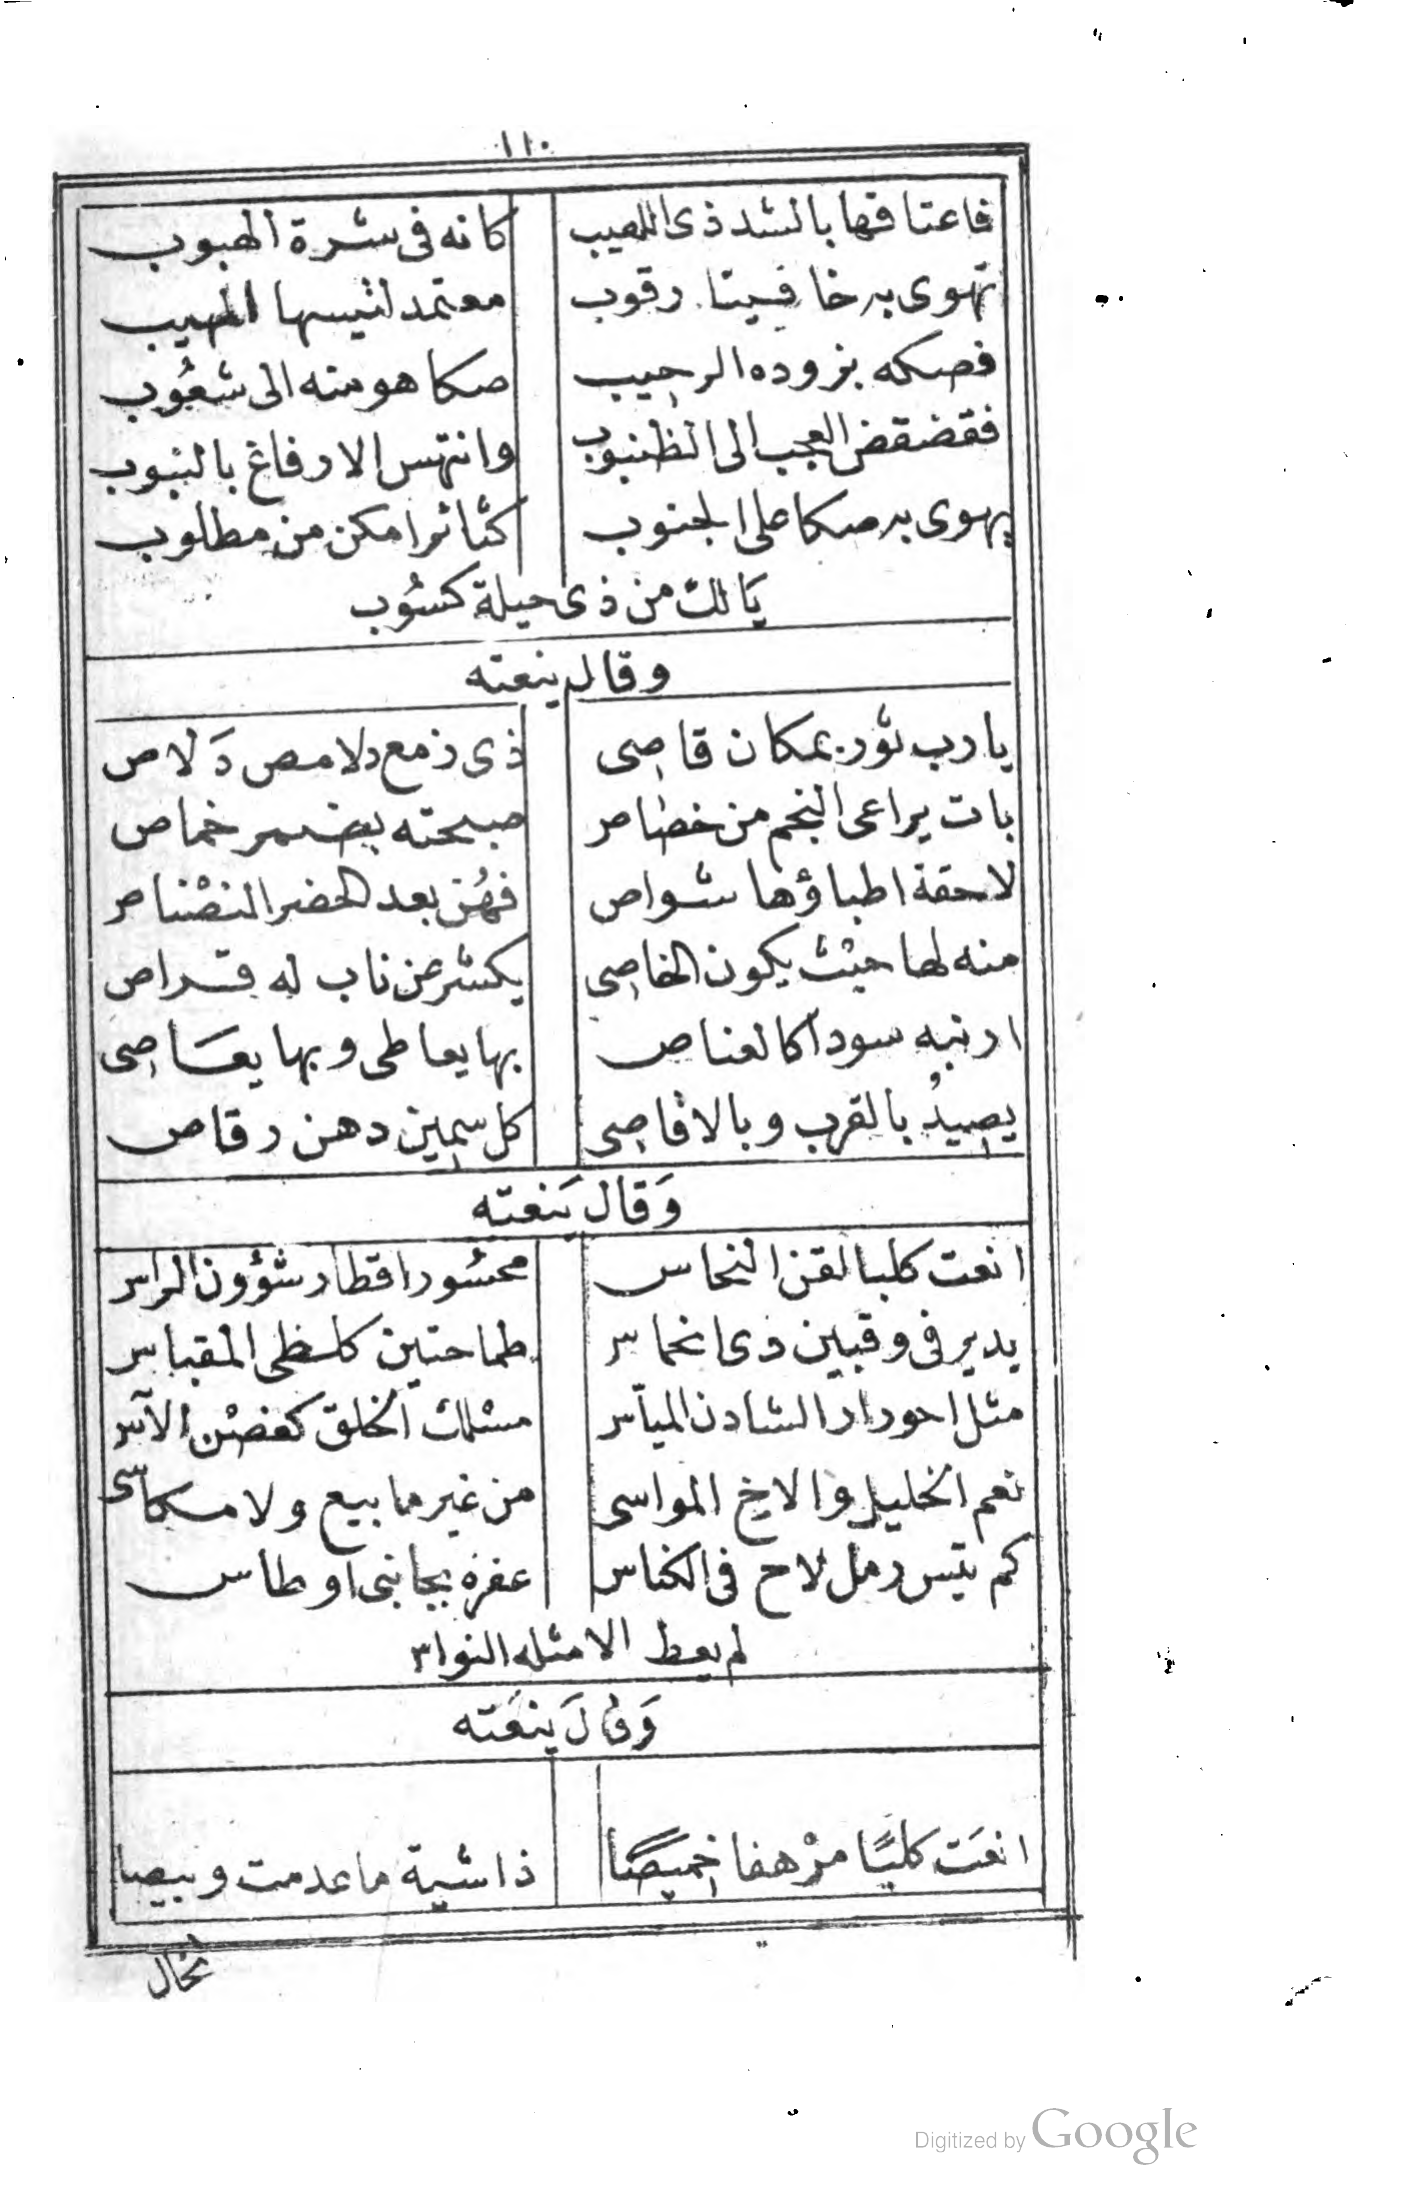 ١١٠
فاعتاقها بالشد ذى اللهيب كانه فى شرة الهبوب
تهوى به خافيتا رقوب معتمد لتيسها المهيب
فصكه بزوده الرحيب صكا هو منه الى شعُوب
فقضقض العجب الى الظنبوب وانتهس الارفاغ بالنيوب
يهوى به صكا على الجنوب كثائر امكن من مطلوب
يَالك من ذى حيلة كسُوب
وقال ينعته
يارب ثور بمكان قاصى ذى زمع دلامص دَلاص
بات يراعى النجم من خصاص صبحته بضمر خماص
لاحقة اطباؤها شواص فهُن بعد الحضر النصْناص
منه لها حيْث يكون الخاصى يكشر عن ناب له قراص
ارنبه سودآ كالعناص بها يعاطى وبها يعَاصى
يصيدُ بالقرب وبالاقاصى كل سمين دهن رقاص
وَقال يَنعته
انعت كلبا لقن النحاس محسُور اقطار شؤون الراس
يدير فى وقبين ذى انخماس طماحتين كلظى المقباس
مثل احورار الشادن الميآس مسْلك الخلق كغصْن الآس
نعم الخليل والاخ المواسى من غير ما بيع ولا مكاسى
كم تيس رمل لاح فى الكناس عفره بجانبى اوطاس
لم يعط الامثله النواس
وَقالَ ينعَته
انعَت كلبًا مرْهفا خميصًا ذا شية ما عدمت وبيصا
تخال
Digitized by Google